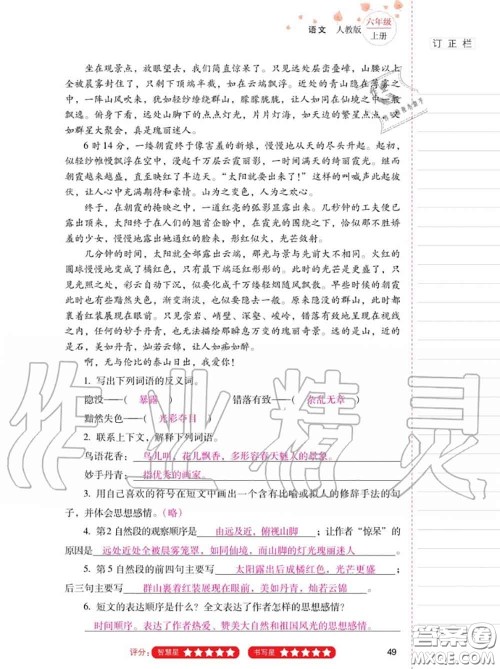 语文 人教版 六年级 上册
订正栏
坐在观景点，放眼望去，我惊呆了。只见远处层峦叠嶂，山腰以上
全被晨雾封住了，只剩下几个尖端，如在云端飘浮。近处的青山隐在薄雾之
中，一阵山风吹来，犹如轻纱缭绕群山，朦朦胧胧，让人如同在仙境之中一般
飘逸。俯身下看，那山脚下的点点灯光，片片灯海，如天边的繁星点点，又
如群星大聚会，真是瑰丽迷人。
6时14分，一缕朝霞终于像害羞的新娘，慢慢地从天的尽头升起。只见
似轻纱帷幔飘浮在空中，漫起千万层云霞丽彩，一圈圈闪着耀眼的光环。继而
朝霞越来越盛，直映红了半边天。“太阳就要出来了！”这样的叫喊声此起彼
伏，让人心中充满期待和豪情。山为之变色，人为之兴奋。
终于，在朝霞的掩映之中，一大块亮红的弧彩显露出来。几分钟的工夫便已
露出顶来，太阳终于在人们的翘首企盼中，在霞光的围绕之下，恰似那不胜娇
羞的少女，慢慢地露出她通红的脸来，彤红似火，光芒敛射。
几分钟的时间，太阳就全部露出云端。那光与景与先前大不相同。火红的
圆镜慢慢地变成了橘红色，只有最下端还红彤彤的。此时的光芒更是盛了，只
见光照之处，彩云自动下沉，似要化成千万缕轻烟随风飘散。早些时候的朝霞
此时也有些黯然失色，渐变渐淡，也似要变成一般。原来隐没的群山，此时又
裹着红装展现在眼前。只见崇岩、峭壁、深壑、峻岭，错落有致地呈现在我们
眼前，任何妙手丹青，也无法描绘那瞬息万变的瑰丽奇景。远的是山，近的
是石，美如丹青，灿若云锦，让人如痴如醉。
啊，无与伦比的泰山日出，我爱你！
1. 写出下列词语的反义词。
隐没——（ 暴露 ） 错落有致——（ 杂乱无章 ）
黯然失色——（ 光彩夺目 ）
2. 联系上下文，解释下列词语。
鸟语花香：鸟儿叫，花儿飘香，多形容春天魅人的景象。
妙手丹青：指优秀的画家。
3. 用自己喜欢的符号在短文中画出一个含有比喻或拟人的修辞手法的句
子，并体会思想感情。（略）
4. 第2自然段的观察顺序是 由远及近，俯视山脚 ；让作者“惊呆”的
原因是 远处近处全被晨雾笼罩，如同仙境，而山脚的灯光瑰丽迷人 。
5. 第5自然段的前四句主要写 太阳露出后成橘红色，光芒更盛 ；
后三句主要写 群山裹着红装展现在眼前，美如丹青，灿若云锦 。
6. 短文的表达顺序是什么？全文表达了作者怎样的思想感情？
时间顺序。表达了作者热爱、赞美大自然和祖国风光的思想感情。
评分： 智慧星 ★★★★★ 书写星 ★★★★★
49
作业精灵